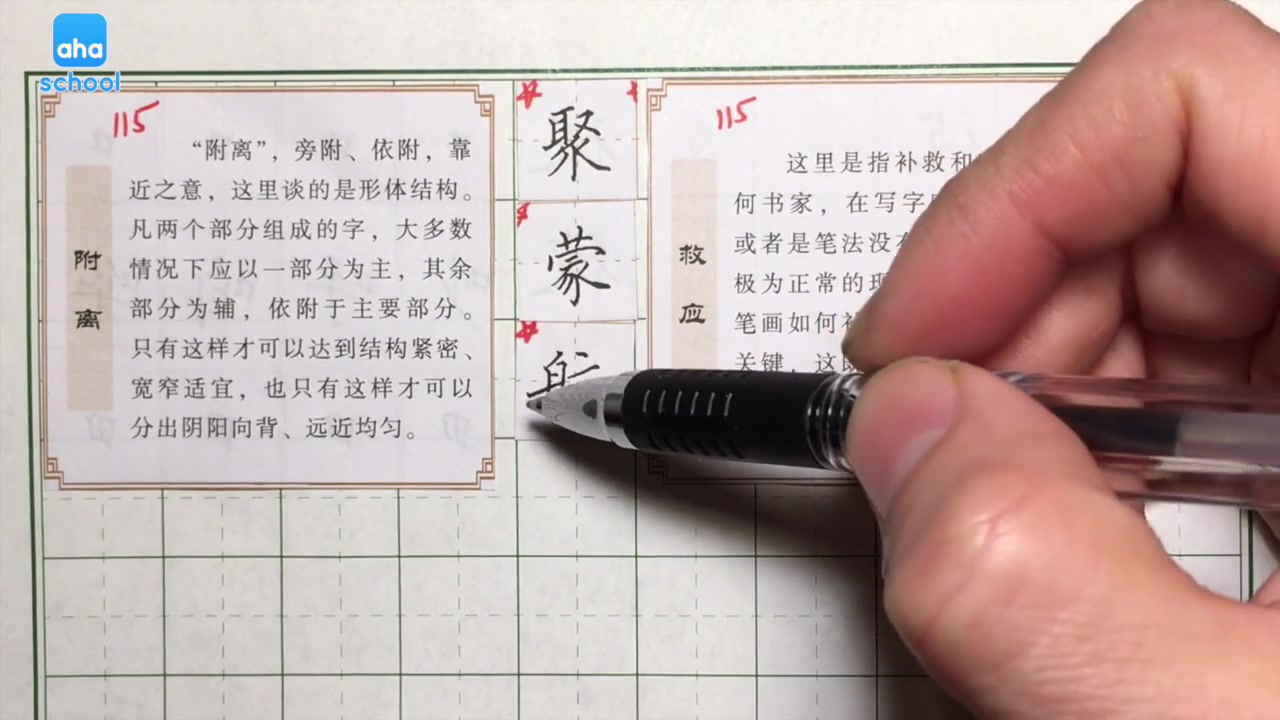 aha
school
115
附离
“附离”，旁附、依附，靠
近之意，这里谈的是形体结构。
凡两个部分组成的字，大多数
情况下应以一部分为主，其余
部分为辅，依附于主要部分。
只有这样才可以达到结构紧密、
宽窄适宜，也只有这样才可以
分出阴阳向背、远近均匀。
聚
蒙
115
救应
这里是指补救和
何书家，在写字
或者是笔法没
极为正常的
笔画如何
关键，这